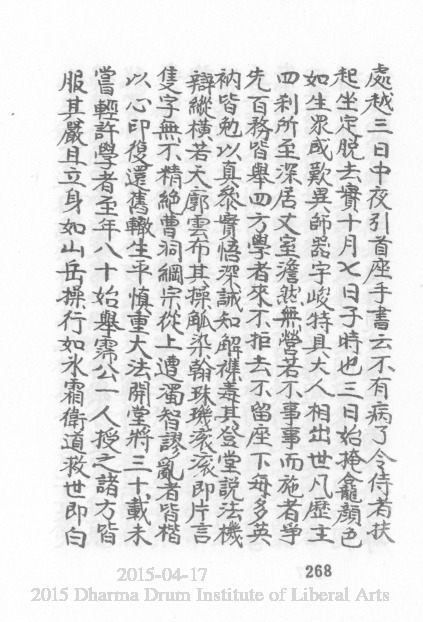 處越三日中夜引首座手書云不有病了令侍者扶
起坐定脫去實十月七日子時也三日始掩龕顏色
如生眾咸歎異師器宇峻特具大人相出世凡歷主
四剎所至深居丈室澹然無營若不事事而施者爭
先百務皆舉四方學者來不拒去不留座下每多英
衲皆勉以真參實悟深誡知解襍毒其登堂說法機
辯縱橫若天廓雲布其操觚染翰珠璣滾滾即片言
隻字無不精絕曹洞綱宗從上遭濁智謬亂者皆楷
以心印復還舊轍生平慎重大法開堂將三十載未
嘗輕許學者至年八十始舉霈公一人授之諸方皆
服其嚴且立身如山岳操行如氷霜衛道救世即白
268
2015-04-17
2015 Dharma Drum Institute of Liberal Arts